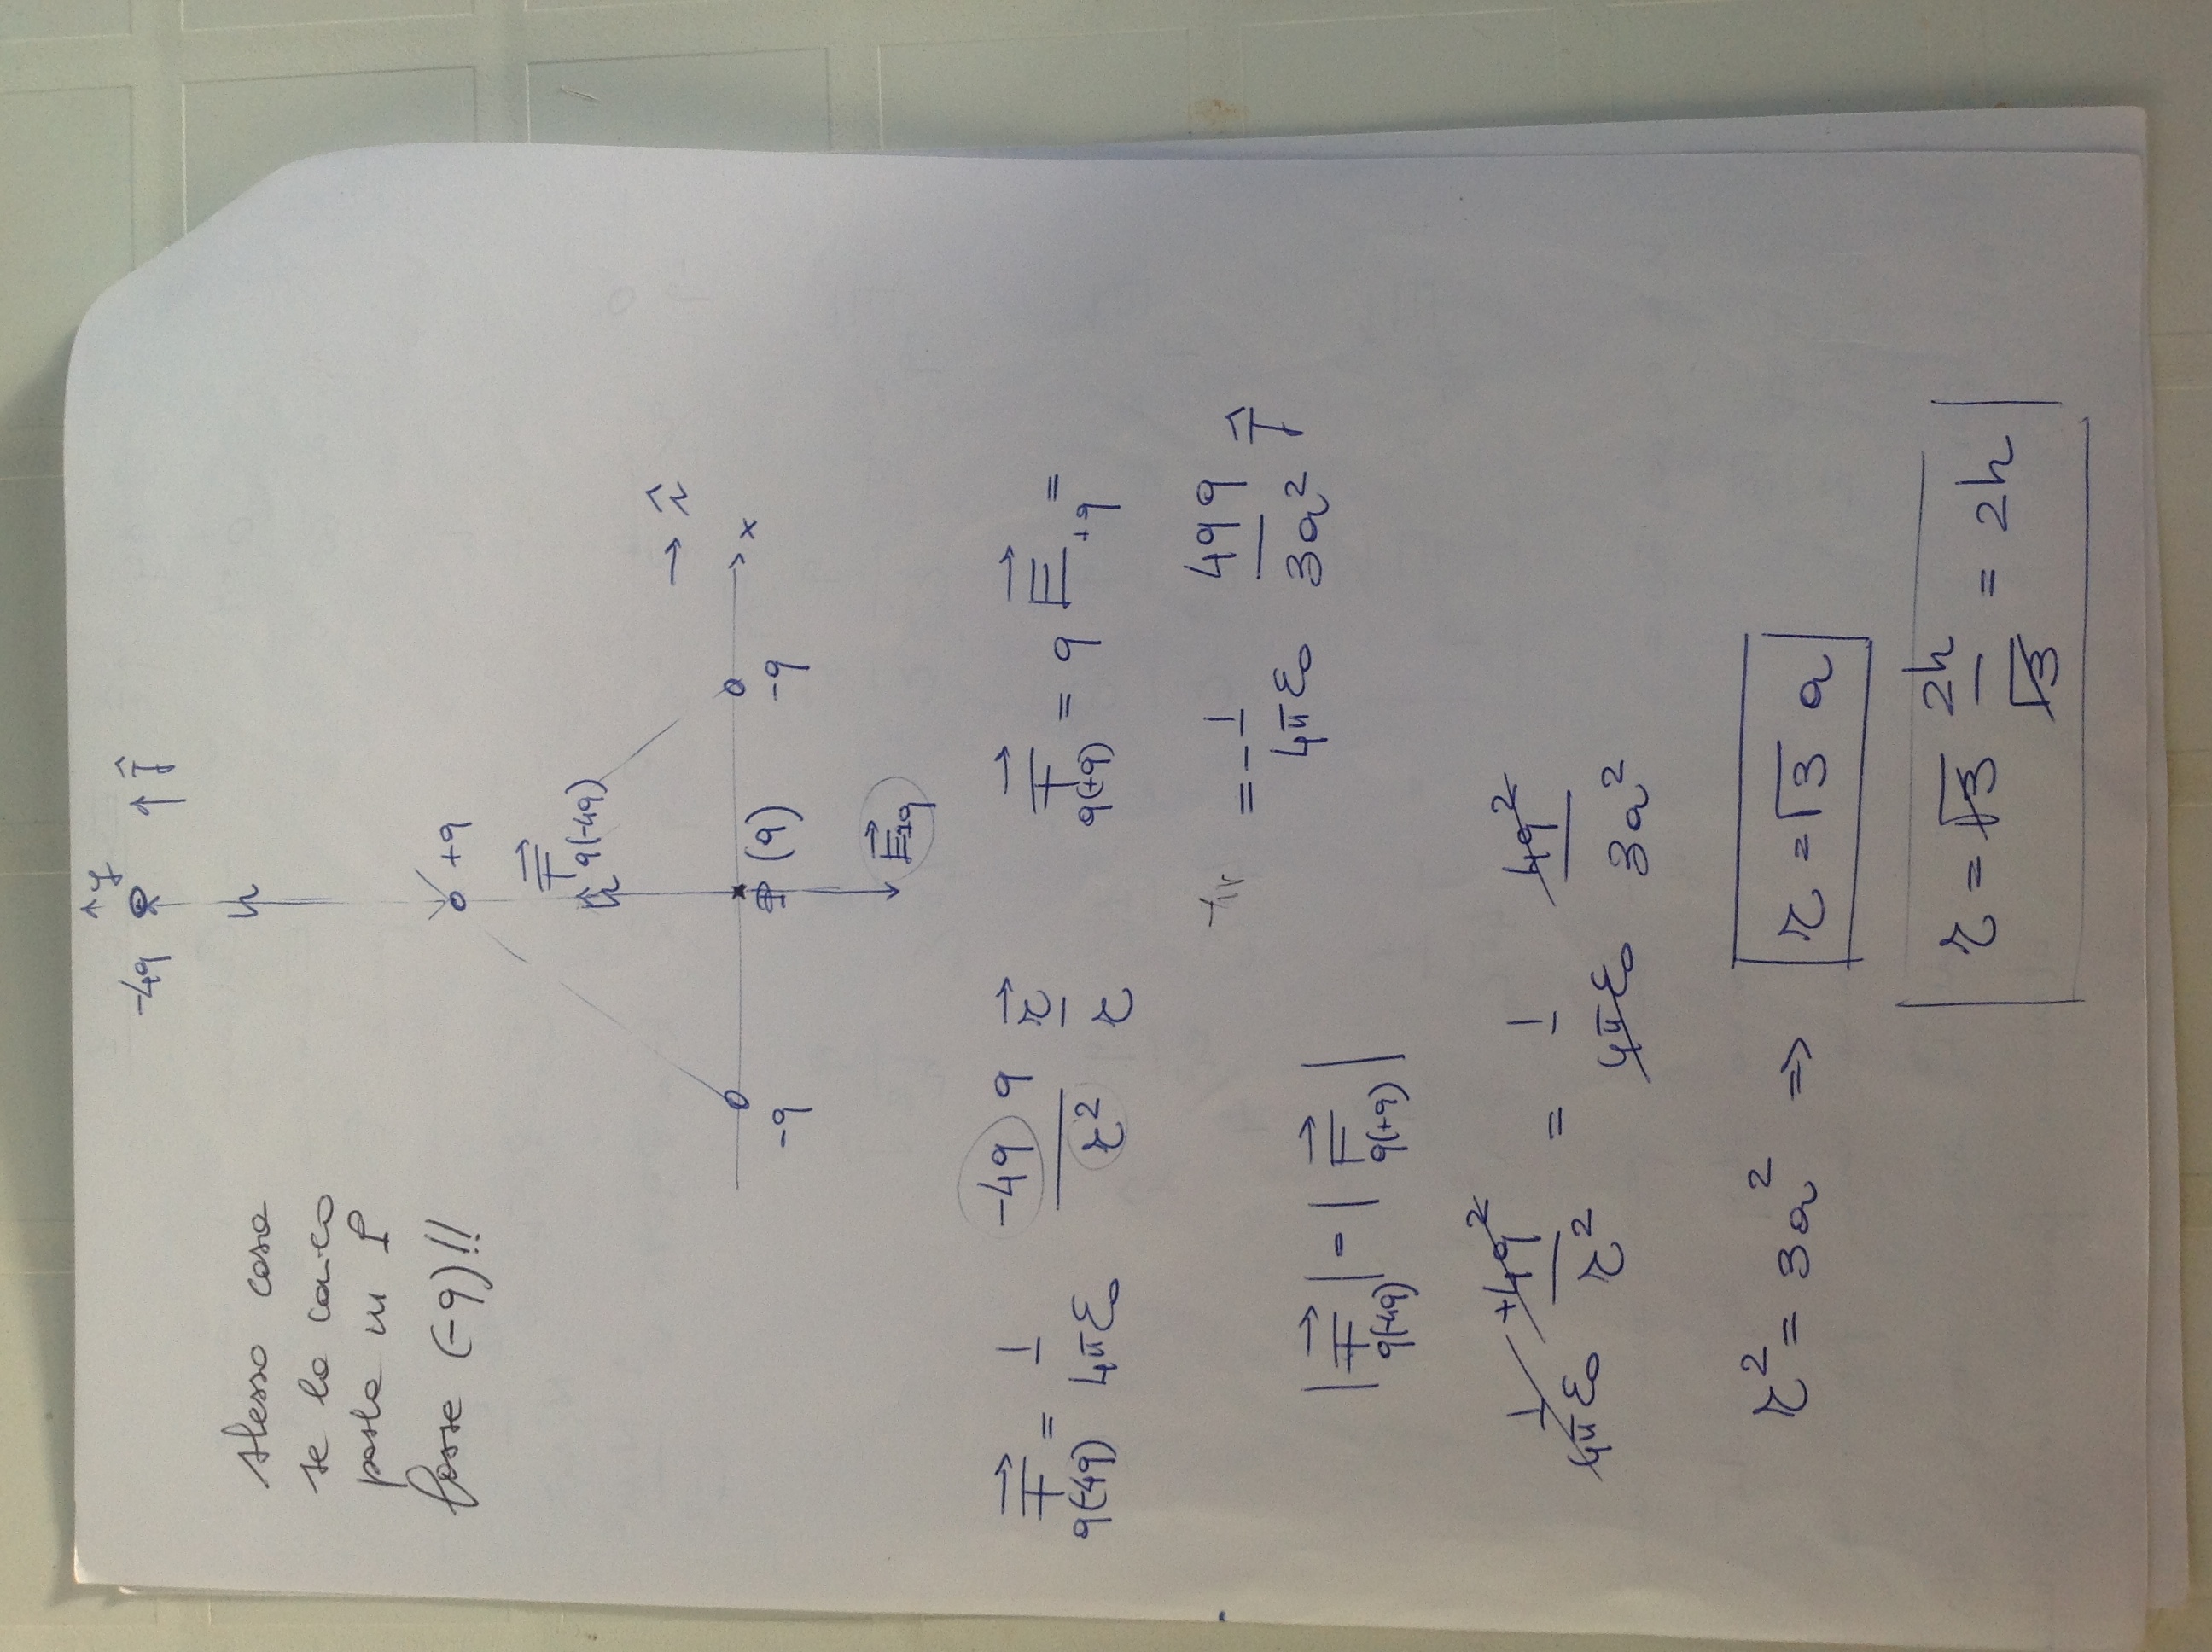 y
-4q ĵ
h
stessa cosa
se la carica
posta in P
fosse (-q)!!
+q
F⃗ q(-4q)
h
î
x
-q P (q) -q
E⃗+q
F⃗ q(-4q) = 1/4πε₀ -4q q/r² r⃗/r F⃗ q(+q) = q E⃗ +q =
= - 1/4πε₀ 4q q/3a² ĵ
|F⃗ q(-4q)| = |F⃗ q(+q)|
1/4πε₀ +4q²/r² = 1/4πε₀ 4q²/3a²
r² = 3a² ⇒ r = √3 a
r = √3 2h/√3 = 2h